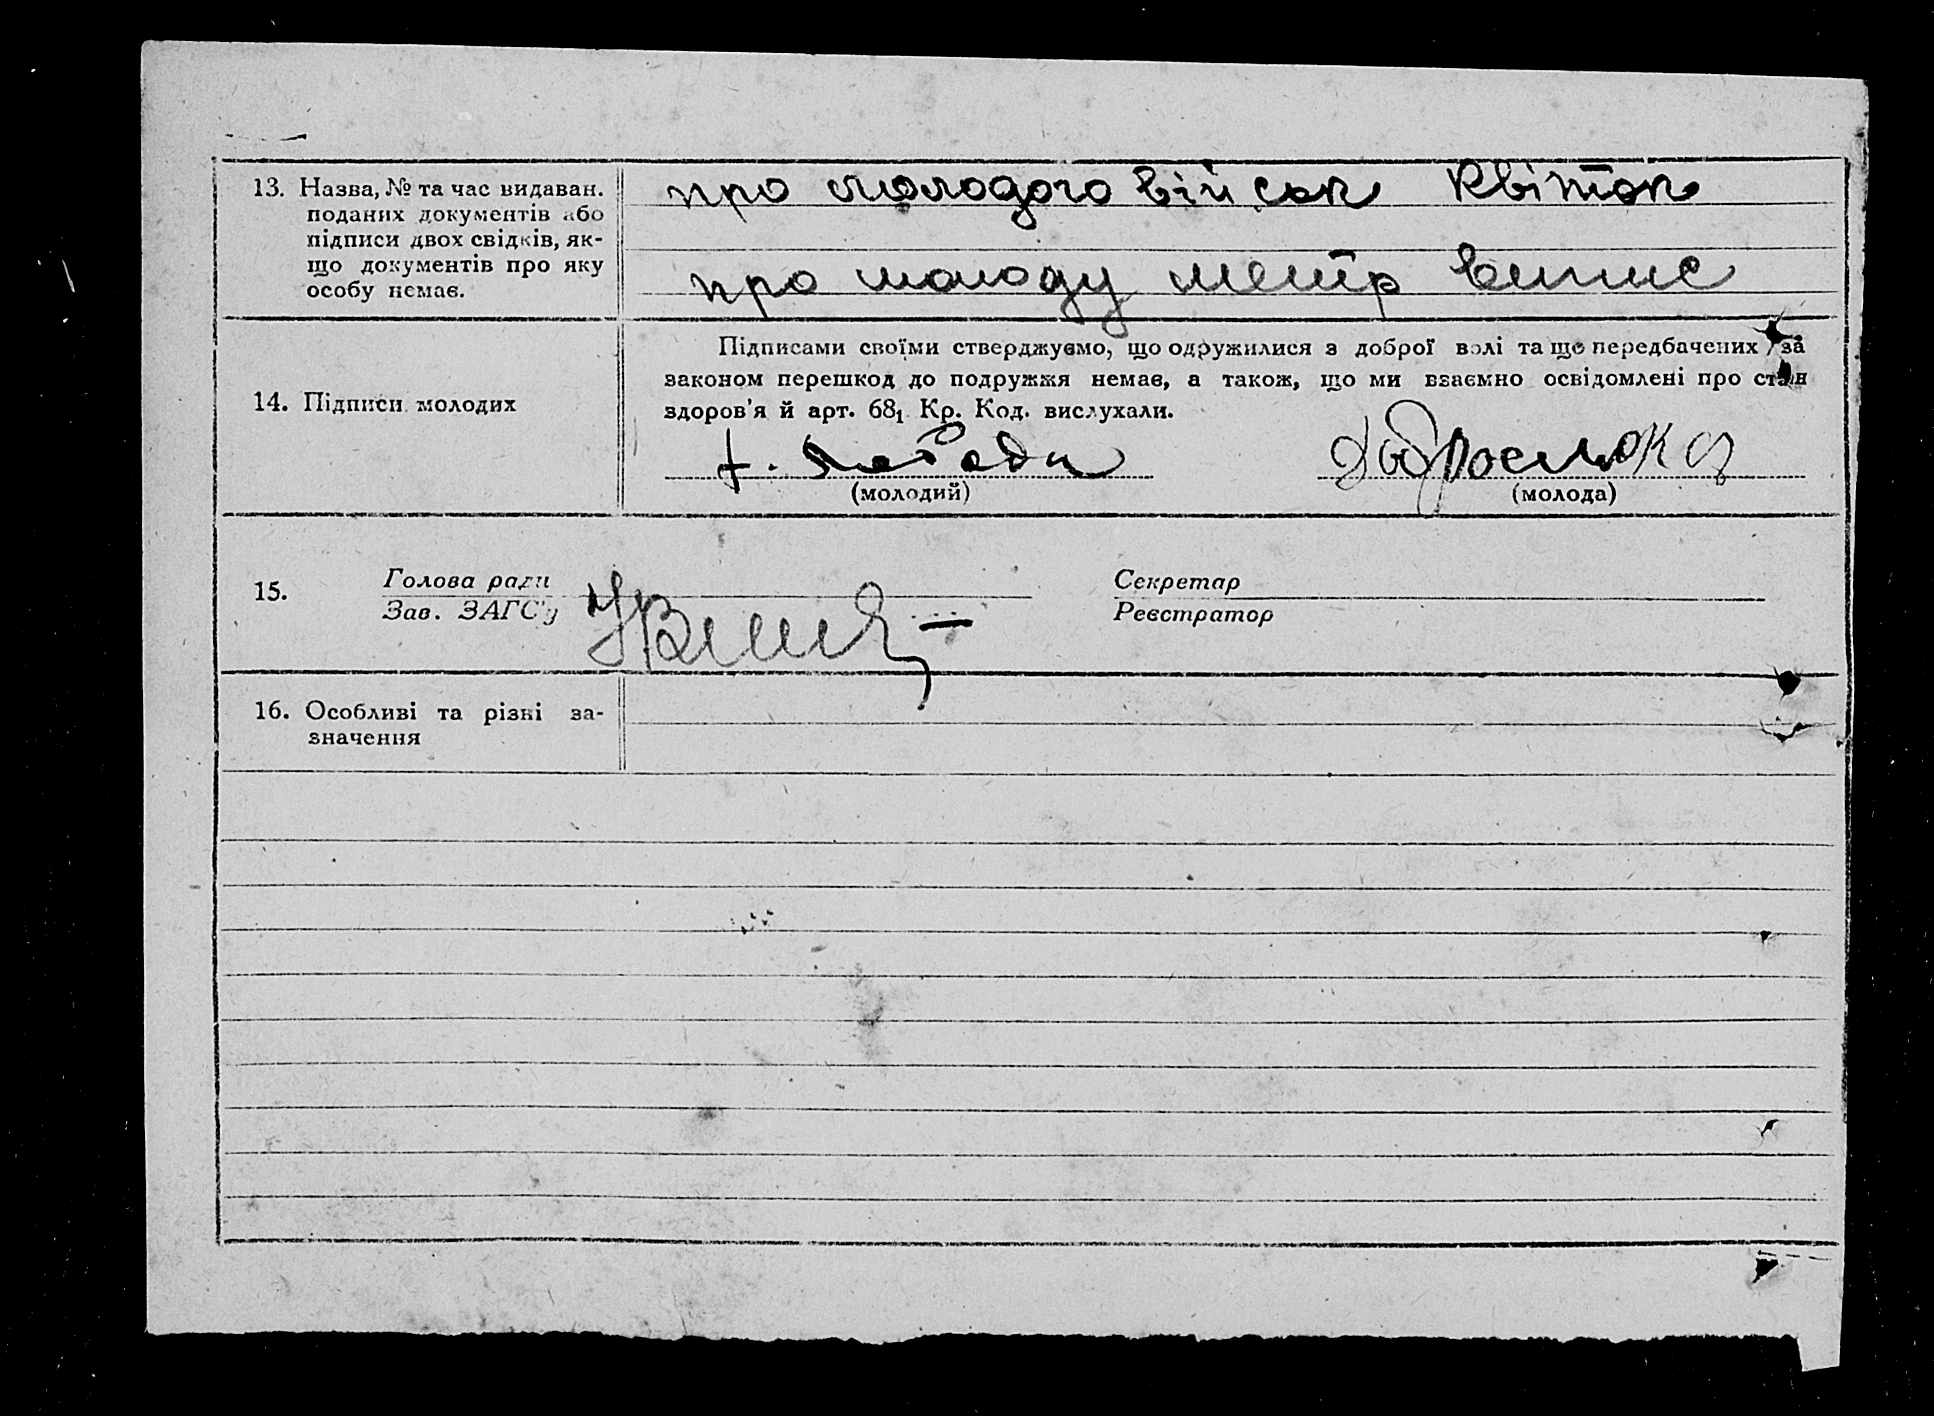 13. Назва, № та час видаван.
поданих документів або
підписи двох свідків, як-
що документів про яку
особу немає.
про молодого війсок квіток
про молоду метр випис
14. Підписи молодих
Підписами своїми стверджуємо, що одружилися з доброї волі та що передбачених за
законом перешкод до подружжя немає, а також, що ми взаємно освідомлені про стан
здоров'я й арт. 68₁ Кр. Код. вислухали.
(молодий)
(молода)
15.
Голова ради
Зав. ЗАГС'у
Секретар
Реєстратор
16. Особливі та різні за-
значення